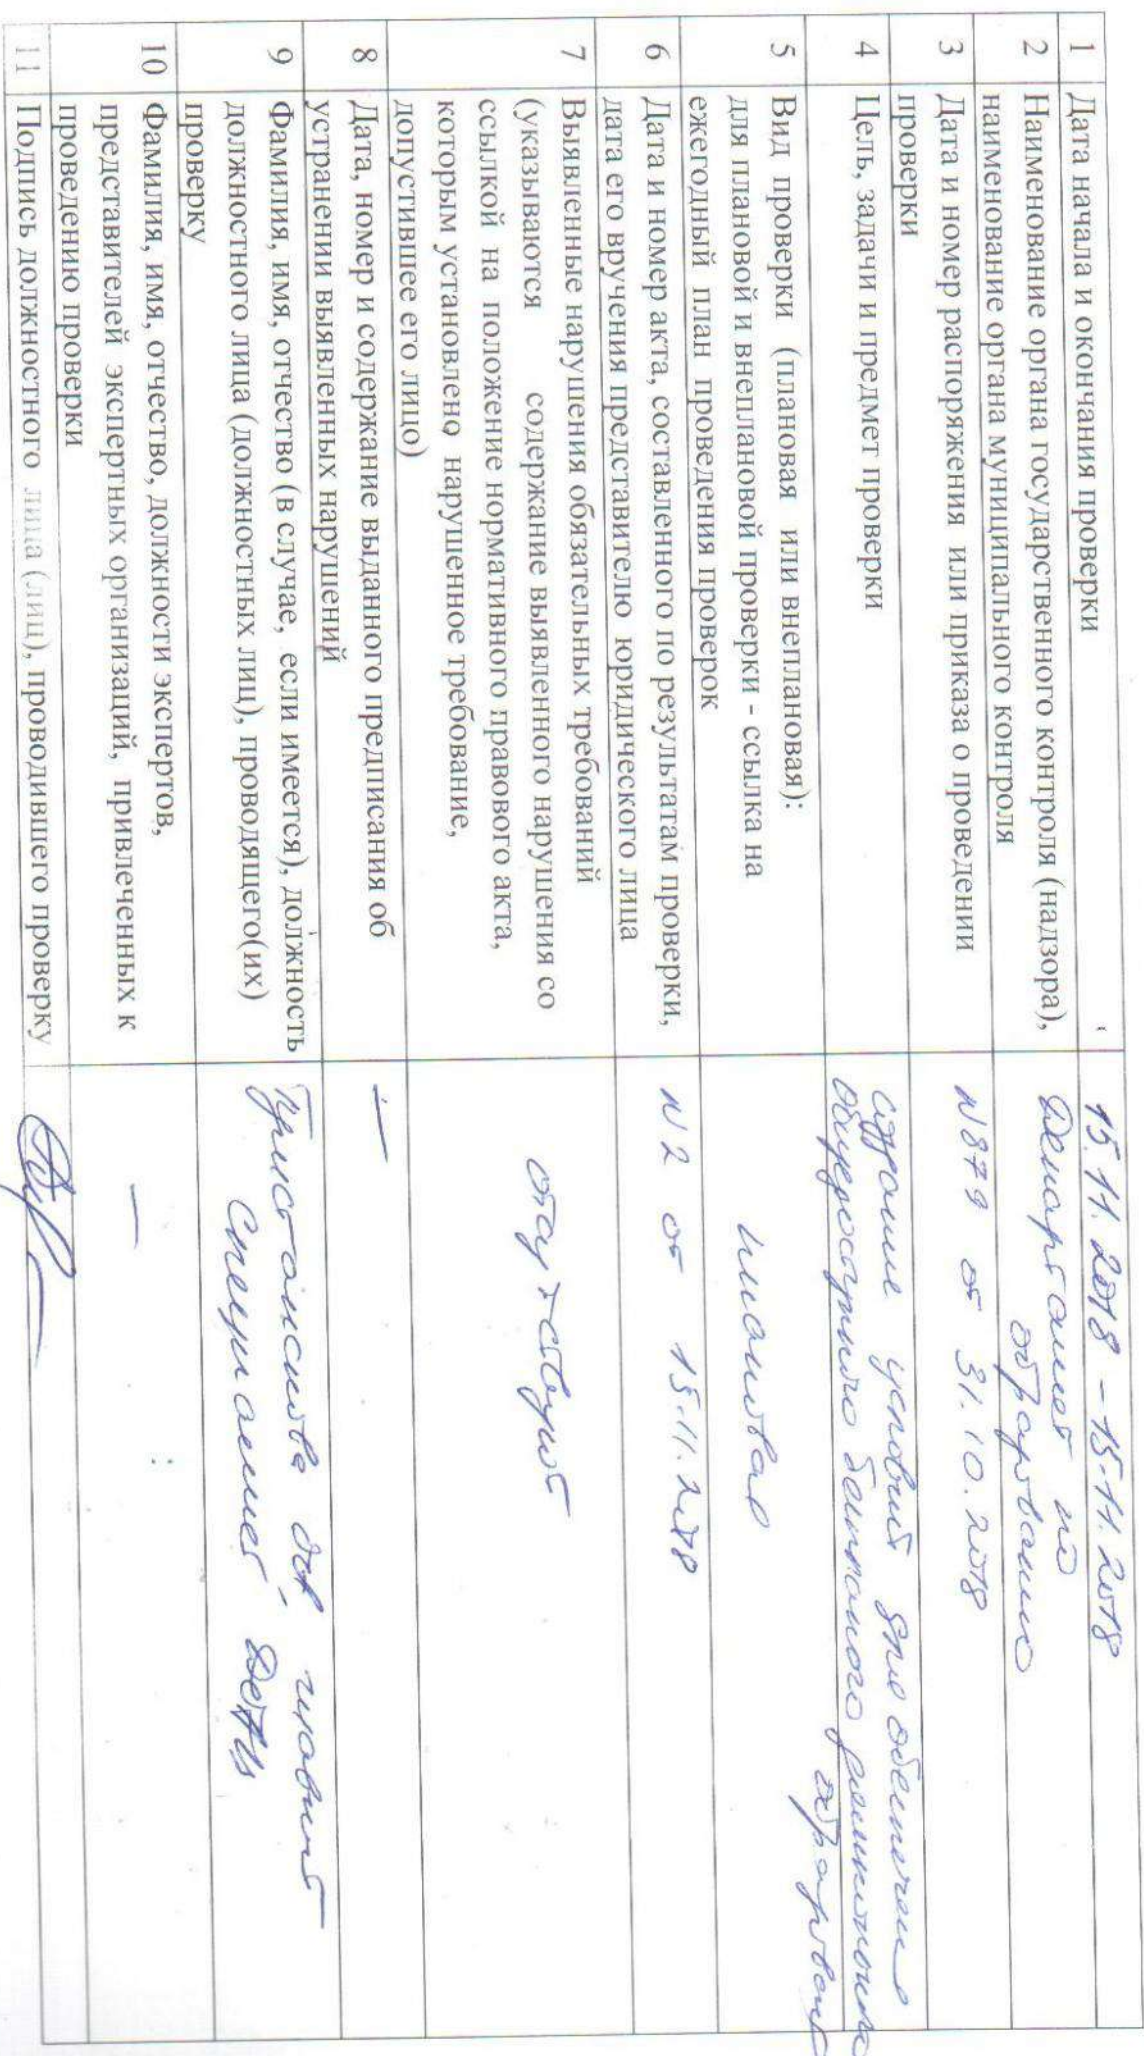 1 Дата начала и окончания проверки 15.11.2018 - 15.11.2018
2 Наименование органа государственного контроля (надзора), Департамент по
наименование органа муниципального контроля образованию
3 Дата и номер распоряжения или приказа о проведении N 879 от 31.10.2018
проверки
4 Цель, задачи и предмет проверки условий для обеспечения
общедоступного бесплатного дошкольного
образования
5 Вид проверки (плановая или внеплановая): плановая
для плановой и внеплановой проверки - ссылка на
ежегодный план проведения проверок
6 Дата и номер акта, составленного по результатам проверки, N 2 от 15.11.2018
дата его вручения представителю юридического лица
7 Выявленные нарушения обязательных требований
(указываются содержание выявленного нарушения со отсутствуют
ссылкой на положение нормативного правового акта,
которым установлено нарушенное требование,
допустившее его лицо)
8 Дата, номер и содержание выданного предписания об —
устранении выявленных нарушений
9 Фамилия, имя, отчество (в случае, если имеется), должность главный
должностного лица (должностных лиц), проводящего(их) специалист
проверку
10 Фамилия, имя, отчество, должности экспертов, —
представителей экспертных организаций, привлеченных к
проведению проверки
11 Подпись должностного лица (лиц), проводившего проверку